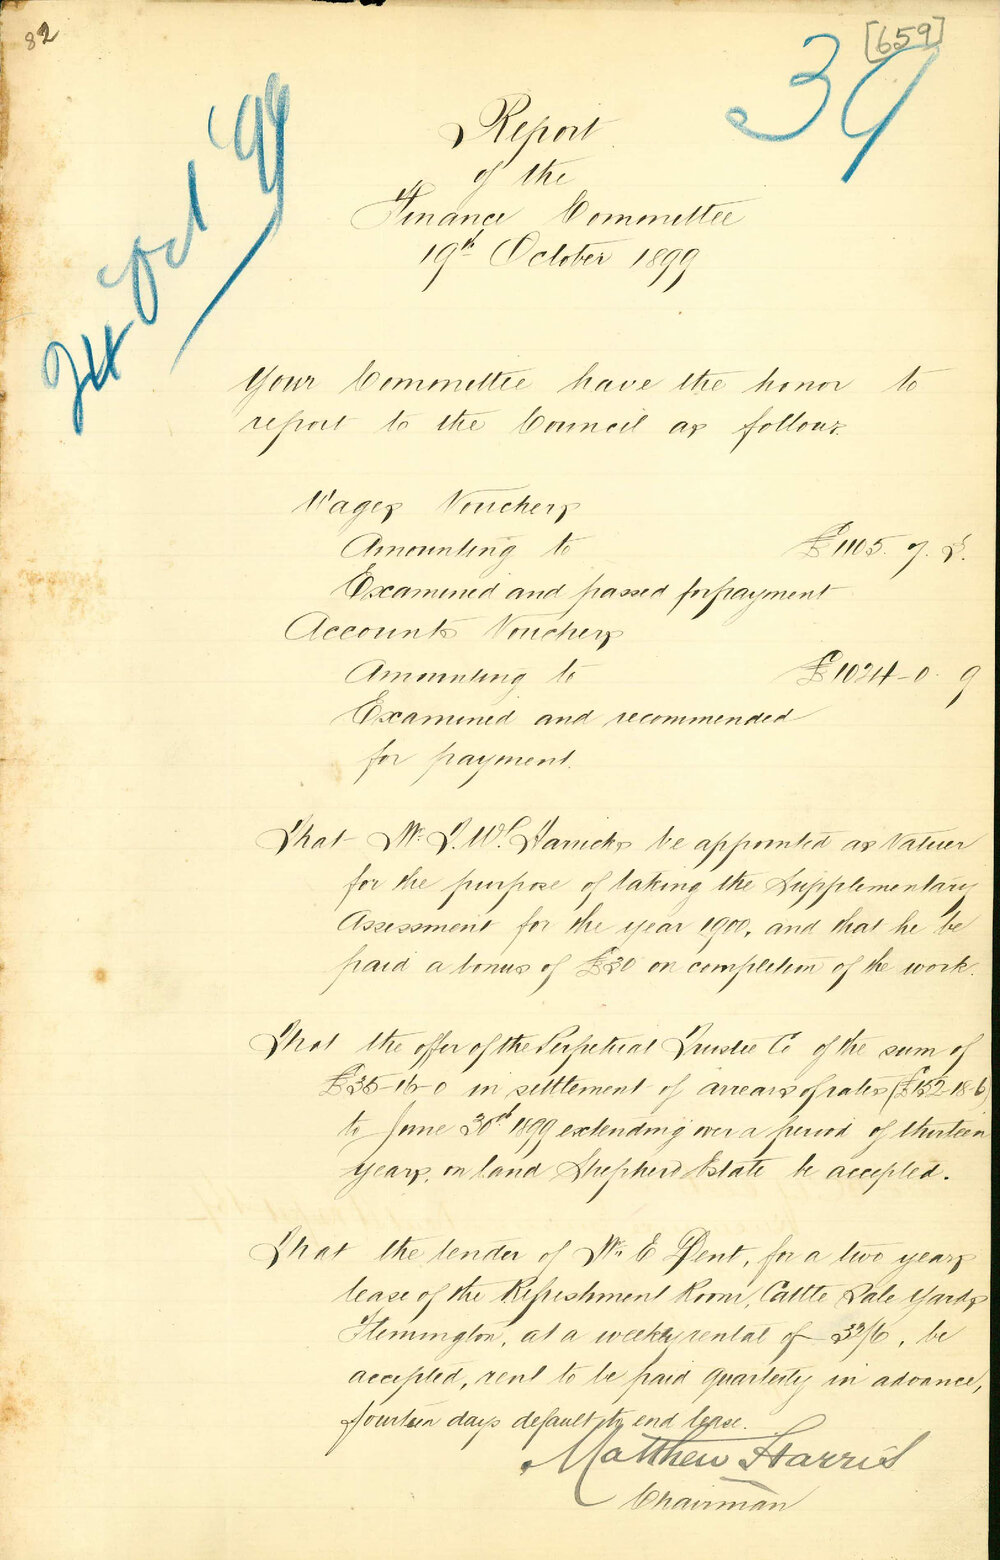 82
[659]
39
24 Oct '99
Report
of the
Finance Committee
19th October 1899
Your Committee have the honor to
report to the Council as follows
Wages Vouchers
Amounting to £1105. 7.
Examined and passed for payment
Accounts Vouchers
Amounting to £1024-0. 9
Examined and recommended
for payment.
That Mr be appointed as Valuer
for the purpose of taking the Supplementary
Assessment for the year 1900, and that he be
paid a bonus of on completion of the work.
That the offer of the Perpetual Trustee Co of the sum of
in settlement of arrears of rates (£152-18-6)
to June 30th 1899 extending over a period of thirteen
years, on land Shepherd Estate be accepted.
That the tender of Mr E Dent, for a two years
lease of the Refreshment Room, Cattle Sale Yards
Flemington, at a weekly rental of be
accepted, rent to be paid quarterly in advance,
fourteen days default to end lease.
Matthew Harris
Chairman